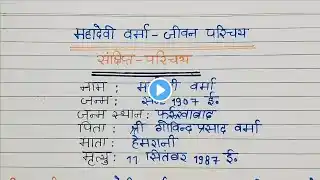 महादेवी वर्मा - जीवन परिचय
संक्षिप्त - परिचय
नाम : वर्मा
जन्म : 1907 ई०
जन्म स्थान : फर्रुखाबाद
पिता : श्री गोविन्द प्रसाद वर्मा
माता : हेमरानी
मृत्यु : 11 सितंबर 1987 ई०